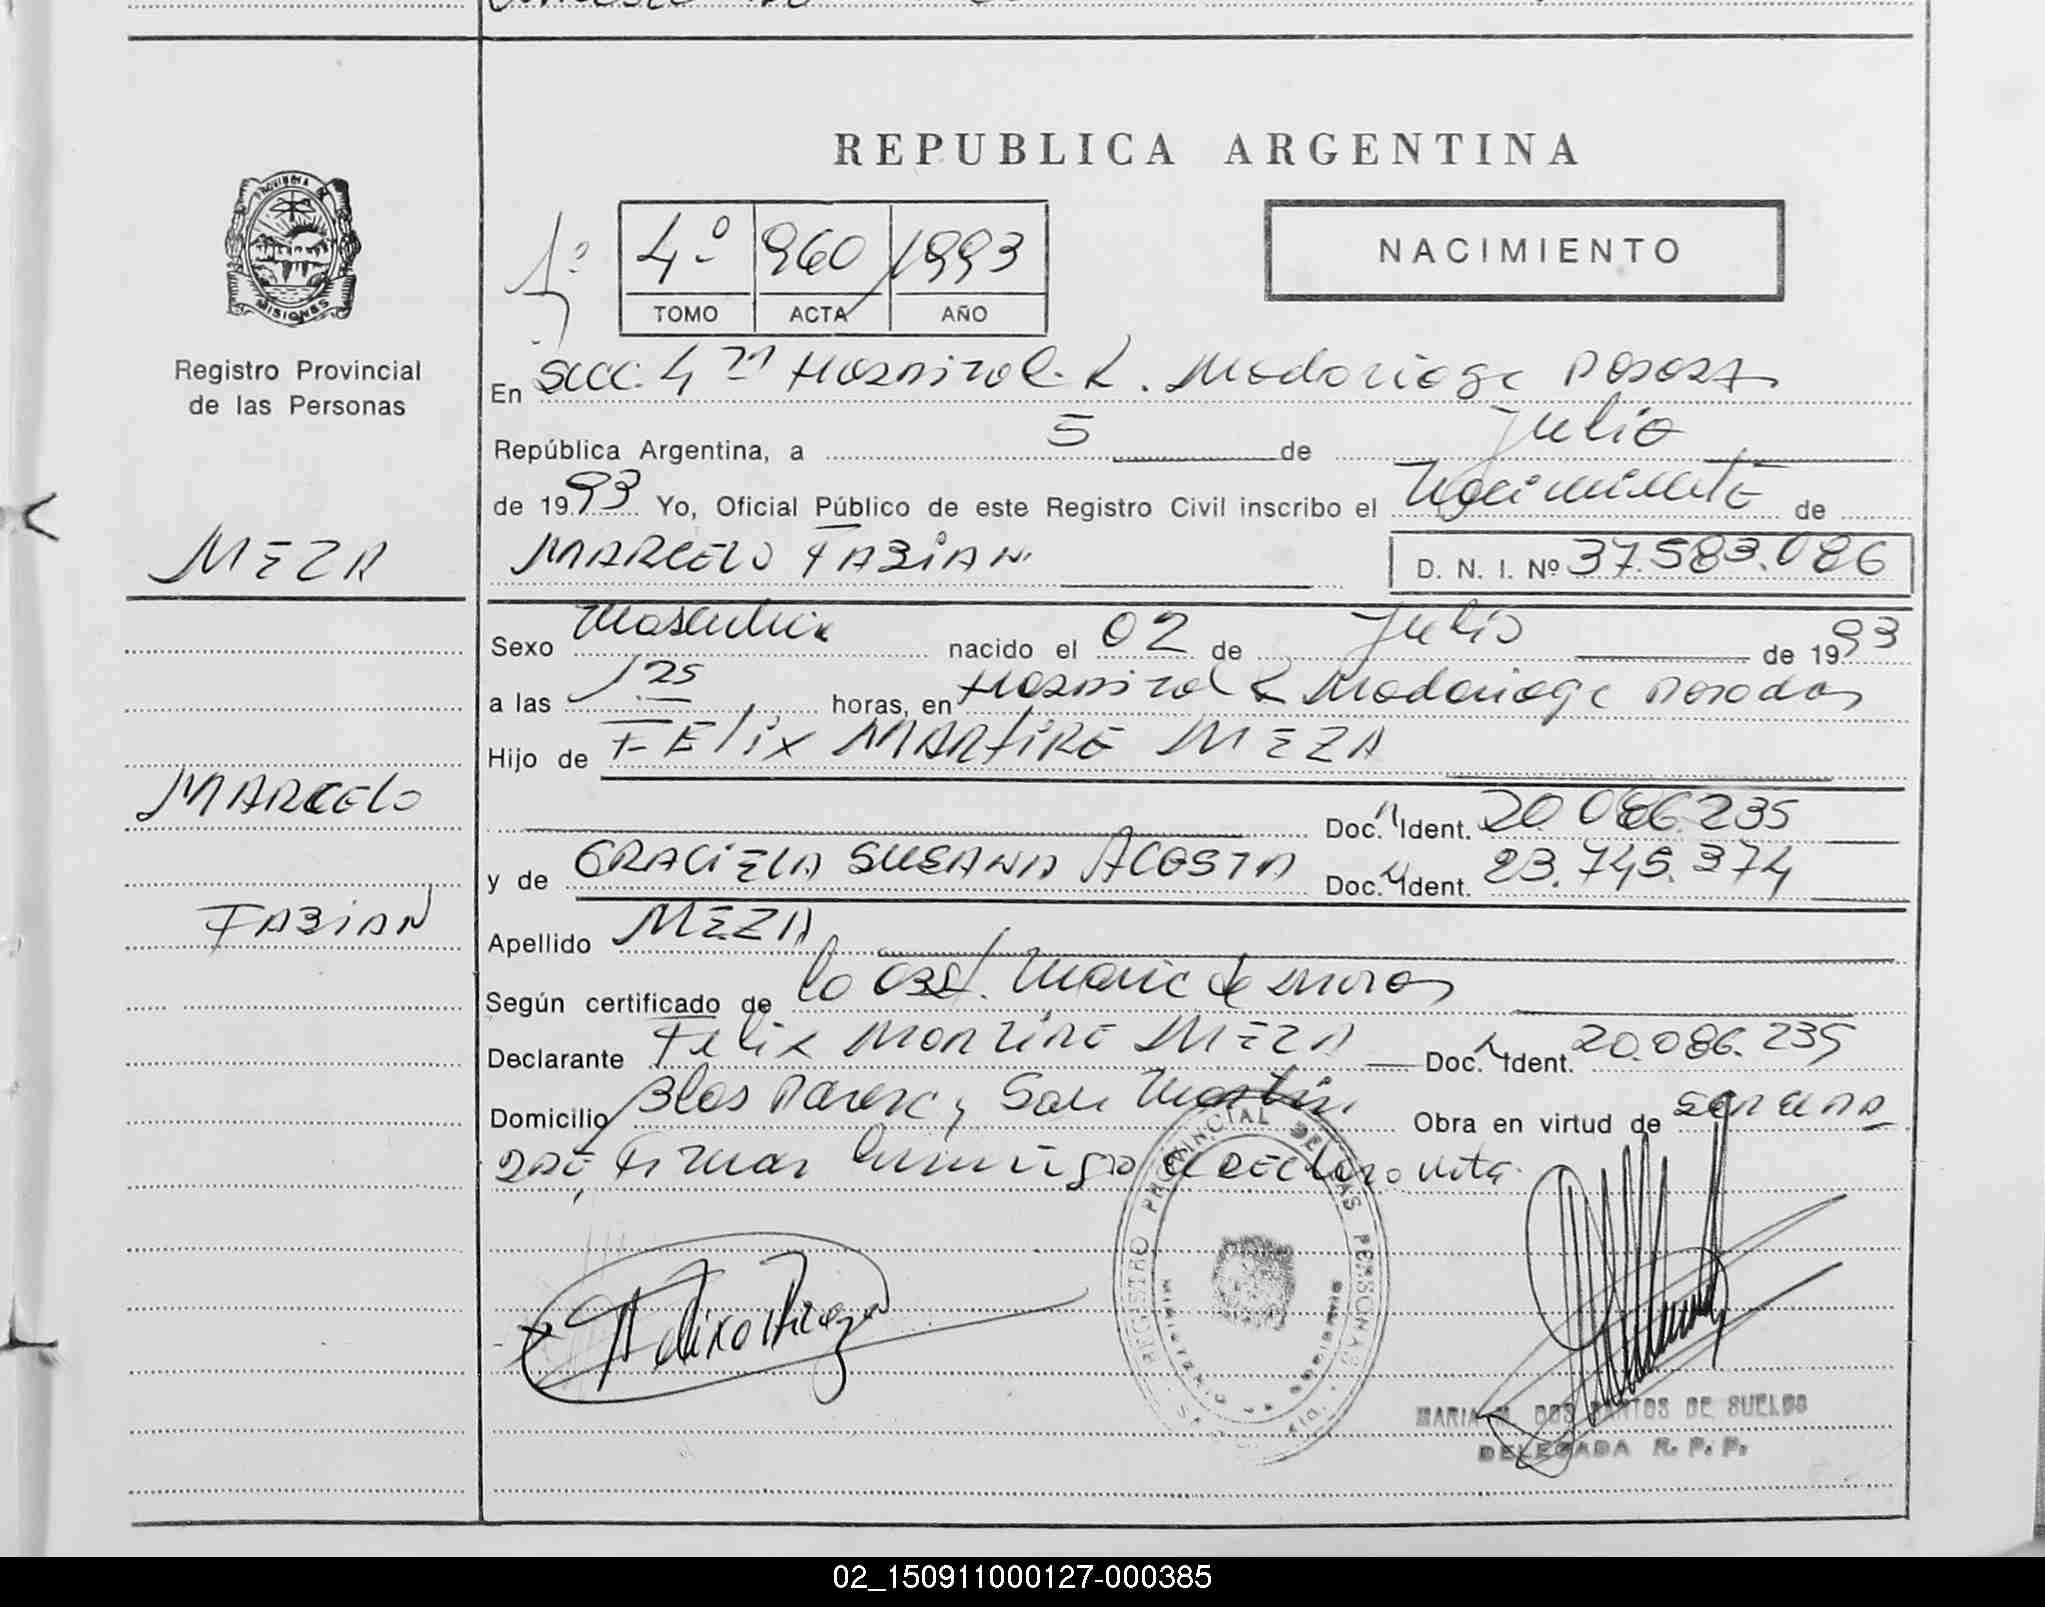 REPUBLICA ARGENTINA
PROVINCIA DE
MISIONES
Registro Provincial
de las Personas
1º
4º 960 1993
TOMO ACTA AÑO
NACIMIENTO
En Secc. 4ª Hospital R. Madariaga Posadas
República Argentina, a 5 de Julio
de 1993 Yo, Oficial Público de este Registro Civil inscribo el Nacimiento de
MEZA
MARCELO FABIAN
D. N. I. Nº 37.583.086
Sexo Masculino nacido el 02 de Julio de 1993
a las 1.25 horas, en Hospital R Madariaga Posadas
Hijo de FELIX MARTIRE MEZA
MARCELO
Doc. Ident. 20.086.235
y de GRACIELA SUSANA ACOSTA Doc. Ident. 23.745.374
FABIAN
Apellido MEZA
Según certificado de la Obst. Maria de
Declarante Felix MARTIRE MEZA Doc. Ident. 20.086.235
Domicilio Blas Parera y San Martin Obra en virtud de ser el
Firman conmigo el declarante
REGISTRO PROVINCIAL DE LAS PERSONAS
MARIA M. DOS SANTOS DE SUELDO
DELEGADA R. P. P.
02_150911000127-000385